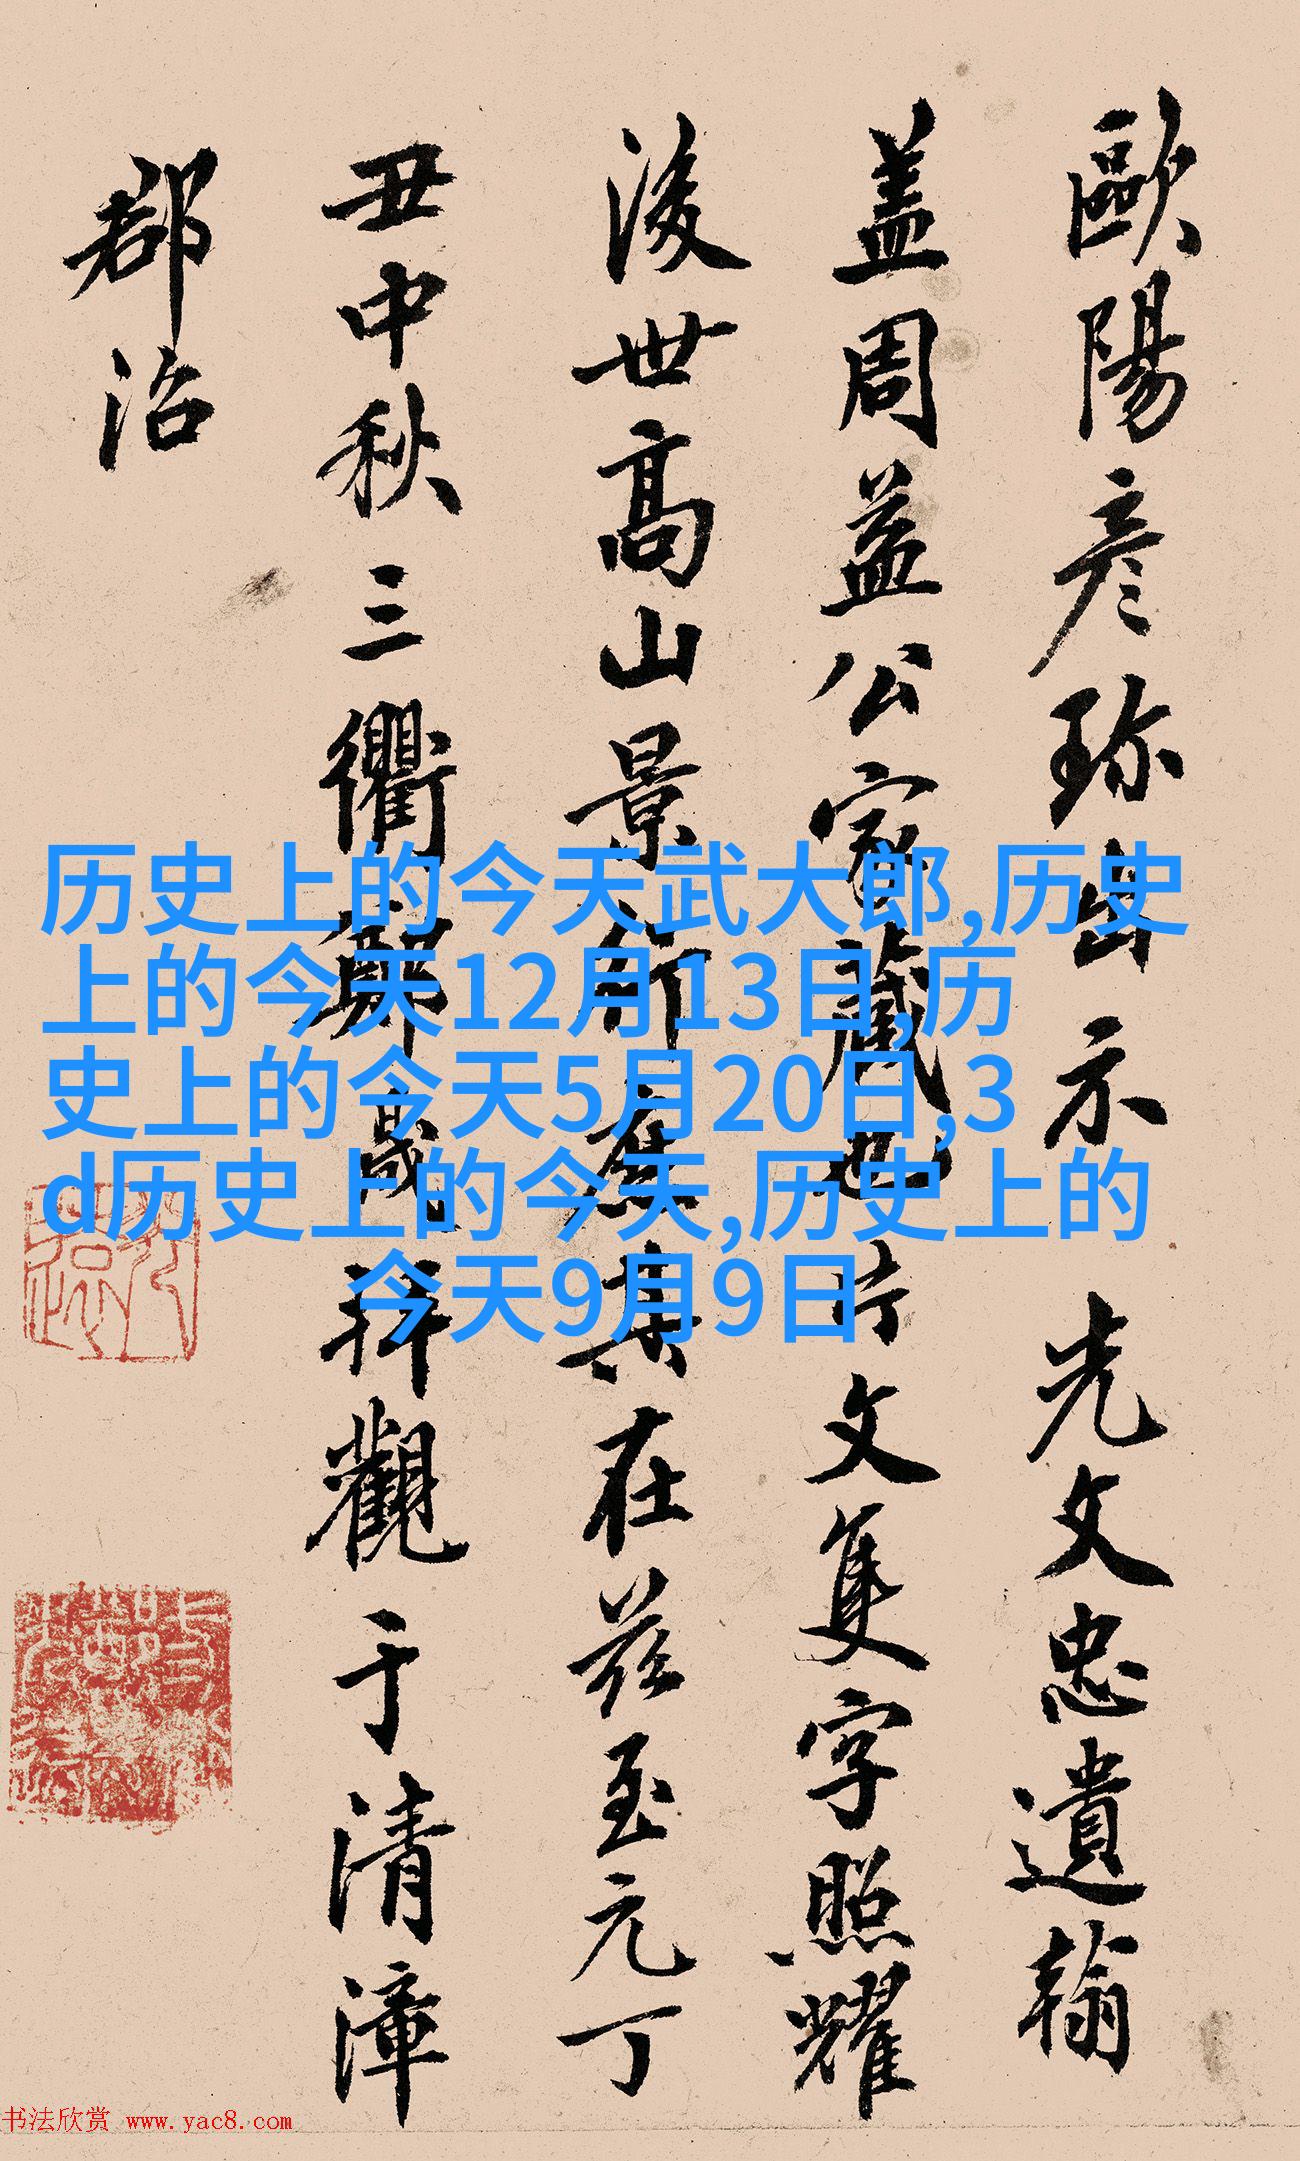 歐陽彦珎出示 光文忠遺翰
盖周益公家藏也片文隻字照耀
後世高山景行應其在兹至元丁
丑中秋三衢鄭晟拜觀于清漳
郡治
历史上的今天武大郎,历史
上的今天12月13日,历
史上的今天5月20日,3
d历史上的今天,历史上的
今天9月9日
书法欣赏 www.yac8.com